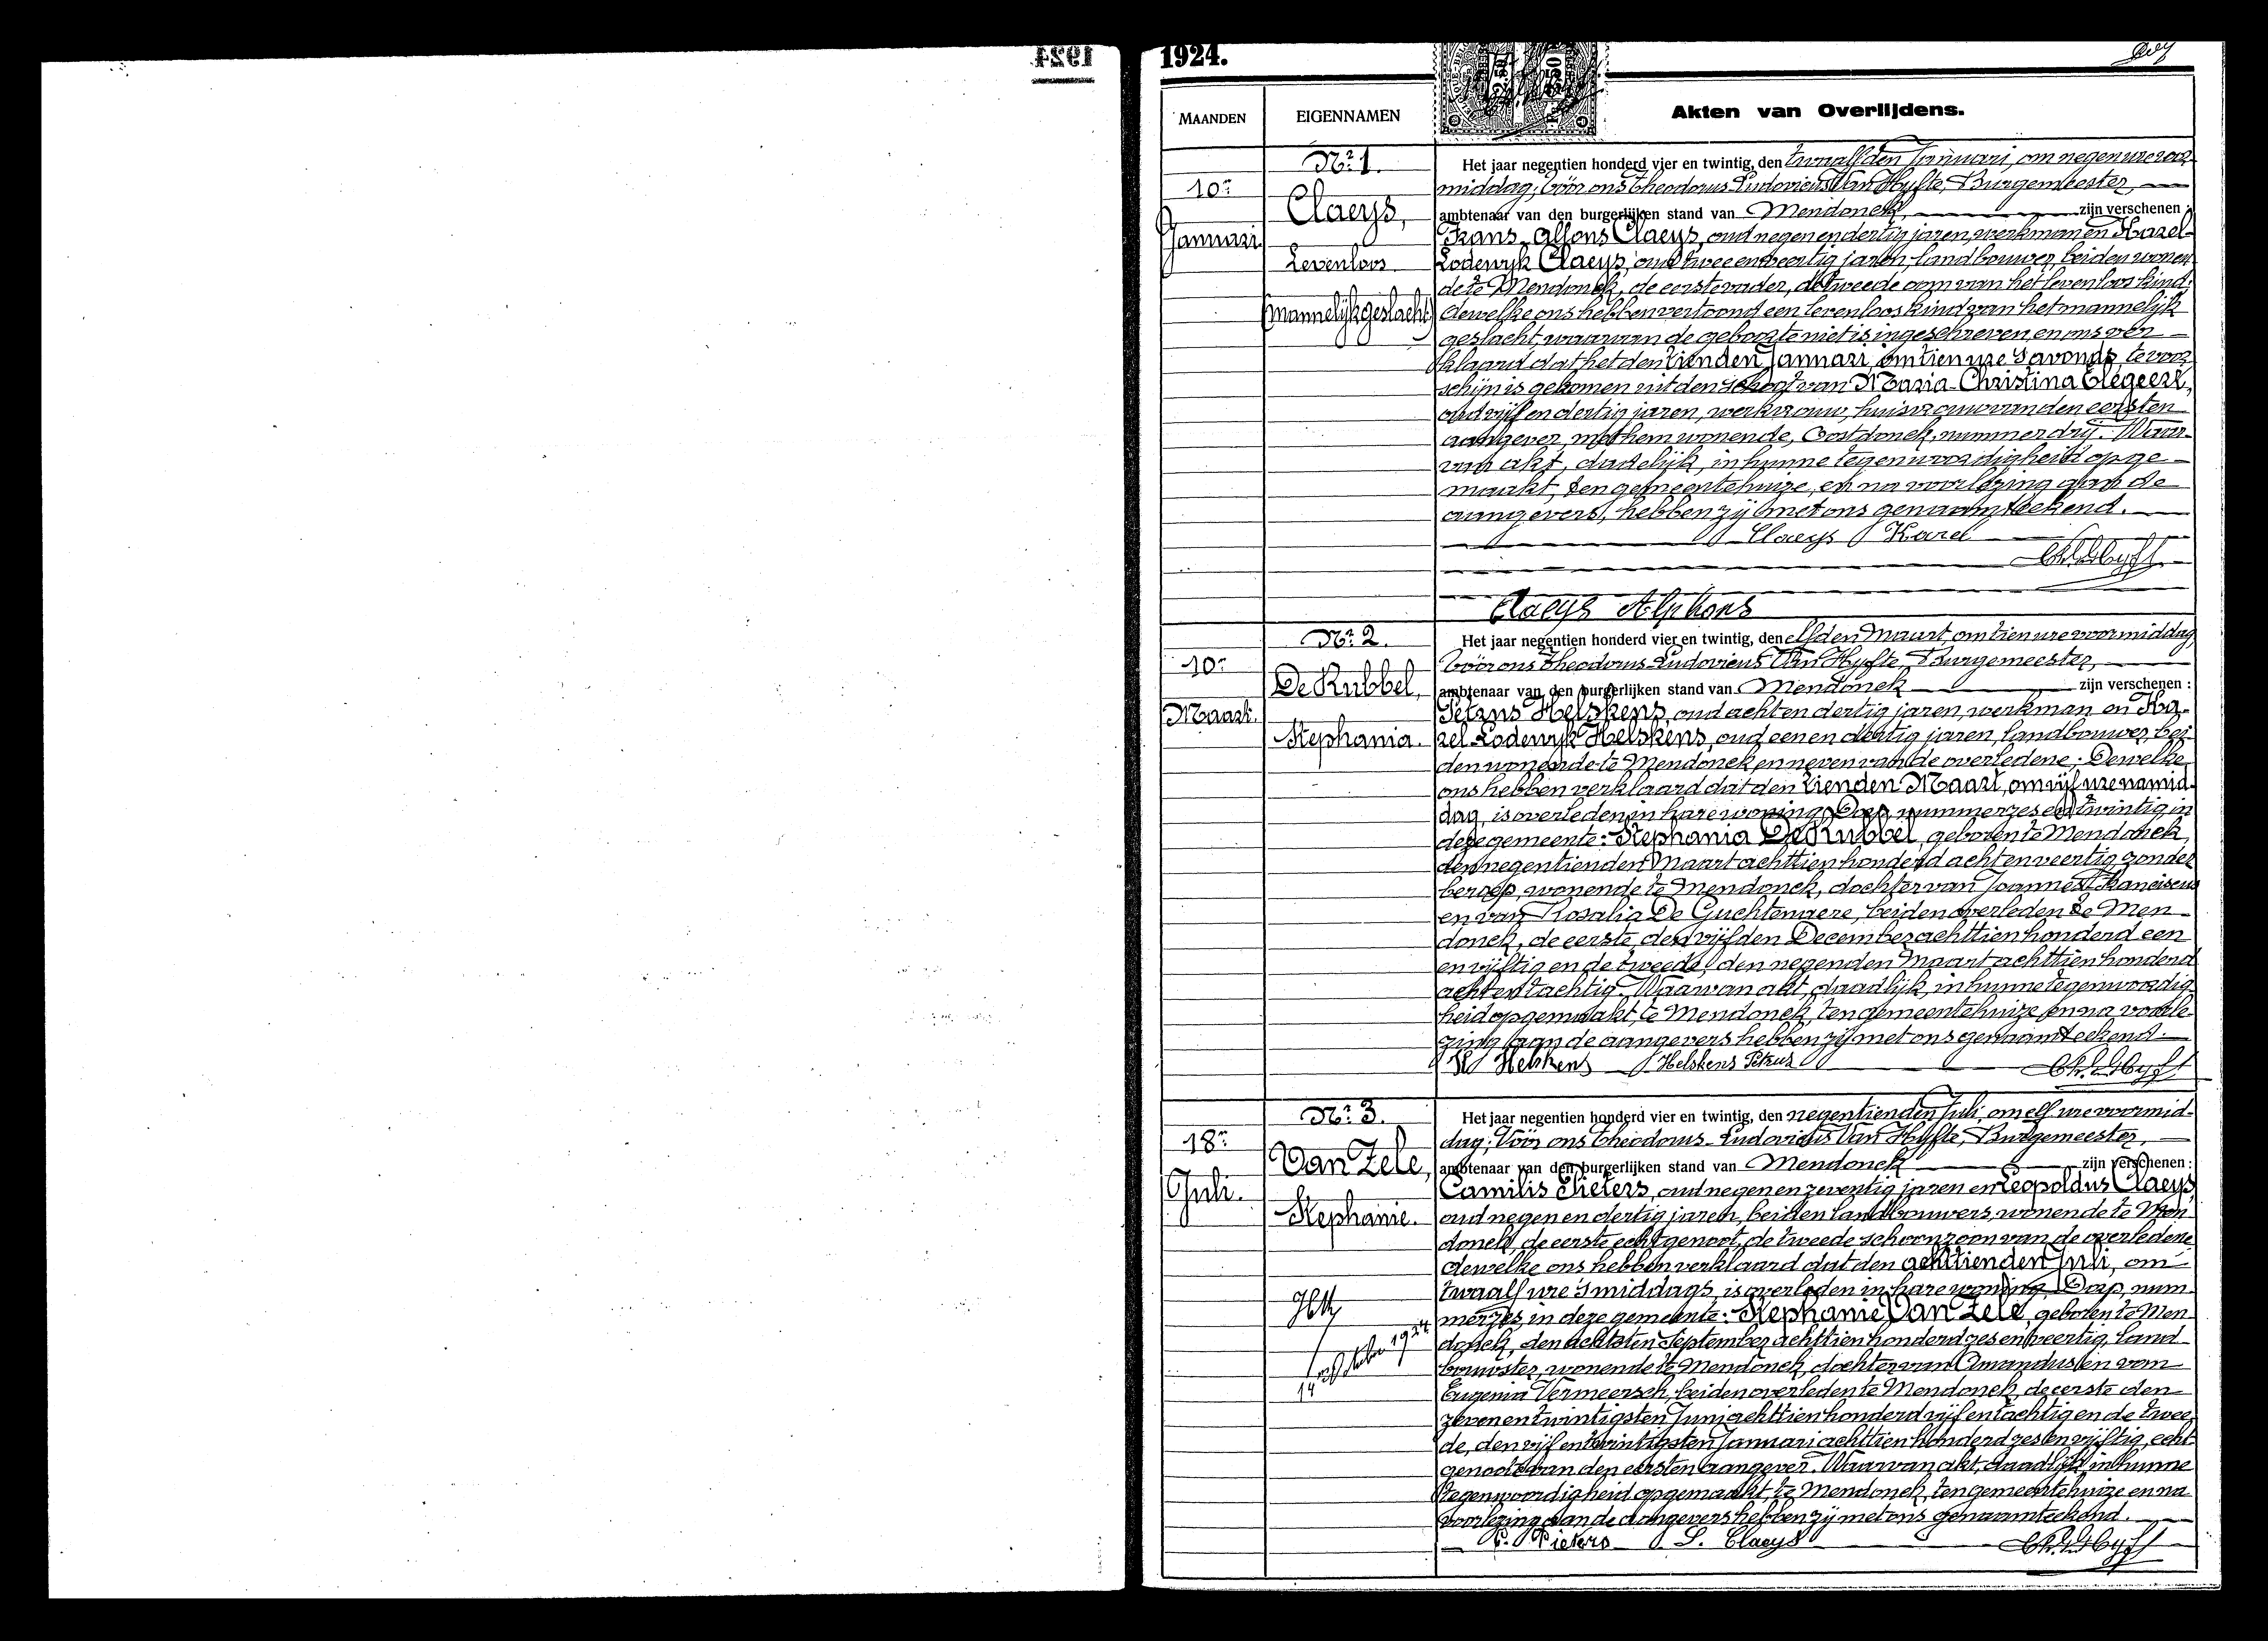 1924.
MAANDEN
EIGENNAMEN
Akten van Overlijdens.
Nr. 1.
10n
Januari
Claeys,
Levenloos
(mannelijk geslacht)
Het jaar negentien honderd vier en twintig, den twaalfden Januari, om negen ure voor-
middag, Vóór ons Theodorus Ludovicus Van Hyfte, Burgemeester,
ambtenaar van den burgerlijken stand van Mendonck, zijn verschenen :
Frans Alfons Claeys, oud negen en dertig jaren, werkman en Karel-
Lodewyk Claeys, oud twee en veertig jaren, landbouwer, beiden wonen-
de te Mendonck, de eerste vader, de tweede oom van het levenloos kind;
dewelke ons hebben vertoond een levenloos kind van het mannelijk
geslacht, waarvan de geboorte niet is ingeschreven, en ons ver-
klaard dat het den tienden Januari, om tien ure s'avonds te voor
schijn is gekomen uit den schoot van Maria Christina Elegeert,
oud vijf en dertig jaren, werkvrouw, huisvrouw van den eersten
aangever, met hem wonende, Oostdonck, nummer drij. Waar-
van akt, dadelijk, in hunne tegenwoordigheid opge-
maakt, ten gemeentehuize, en na voorlezing aan de
aangevers, hebben zij met ons genaamteekend.
Claeys Karel
Claeys Alphons
Nr. 2.
10n
Maart.
De Rubbel,
Stephania.
Het jaar negentien honderd vier en twintig, den elfden Maart, om tien ure voormiddag,
Vóór ons Theodorus Ludovicus Van Hyfte, Burgemeester,
ambtenaar van den burgerlijken stand van Mendonck zijn verschenen :
Petrus Helskens, oud acht en dertig jaren, werkman en Ka-
rel Lodewyk Helskens, oud een en dertig jaren, landbouwer, bei-
den wonende te Mendonck en neven van de overledene; Dewelke
ons hebben verklaard dat den tienden Maart, om vijf ure namid-
dag, is overleden in hare woning, Dorp, nummer zes en twintig in
deze gemeente: Stephania De Rubbel, geboren te Mendonck,
den negentienden Maart achttien honderd acht en veertig, zonder
beroep, wonende te Mendonck, dochter van Joannes Franciscus
en van Rosalia De Guchtenaere, beiden overleden te Men-
donck, de eerste, den vijfden December achttien honderd een
en vijftig en de tweede, den negenden Maart achttien honderd
acht en tachtig. Waarvan akt, daadlijk, in hunne tegenwoordig-
heid opgemaakt te Mendonck, ten gemeentehuize en na voorle-
zing aan de aangevers hebben zij met ons genaamteekend.
K Helskens Helskens Petrus
Nr. 3.
18n
Juli.
Van Zele,
Stephanie.
14 October 1924
Het jaar negentien honderd vier en twintig, den negentienden Juli, om elf ure voormid-
dag; Vóór ons Theodorus Ludovicus Van Hyfte, Burgemeester,
ambtenaar van den burgerlijken stand van Mendonck zijn verschenen :
Camilis Pieters, oud negen en zeventig jaren en Leopoldus Claeys,
oud negen en dertig jaren, beiden landbouwers, wonende te Men-
donck, de eerste echtgenoot, de tweede schoonzoon van de overledene
dewelke ons hebben verklaard dat den achttienden Juli, om
twaalf ure s'middags, is overleden in hare woning, Dorp, num-
mer zes, in deze gemeente: Stephanie Van Zele, geboren te Men-
donck, den achtsten September achttien honderd zes en veertig, land-
bouwster, wonende te Mendonck, dochter van Amandus en van
Eugenia Vermeersch, beiden overleden te Mendonck, de eerste den
zeven en twintigsten Juni achttien honderd vijf en tachtig en de twee-
de, den vijf en twintigsten Januari achttien honderd zes en vijftig, echt-
genoote van den eersten aangever. Waarvan akt, daadlijk in hunne
tegenwoordigheid opgemaakt, te Mendonck, ten gemeentehuize en na
voorlezing aan de aangevers hebben zij met ons genaamteekend.
C. Pieters L. Claeys